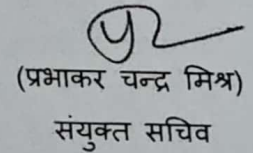 (प्रभाकर चन्द्र मिश्र)
संयुक्त सचिव